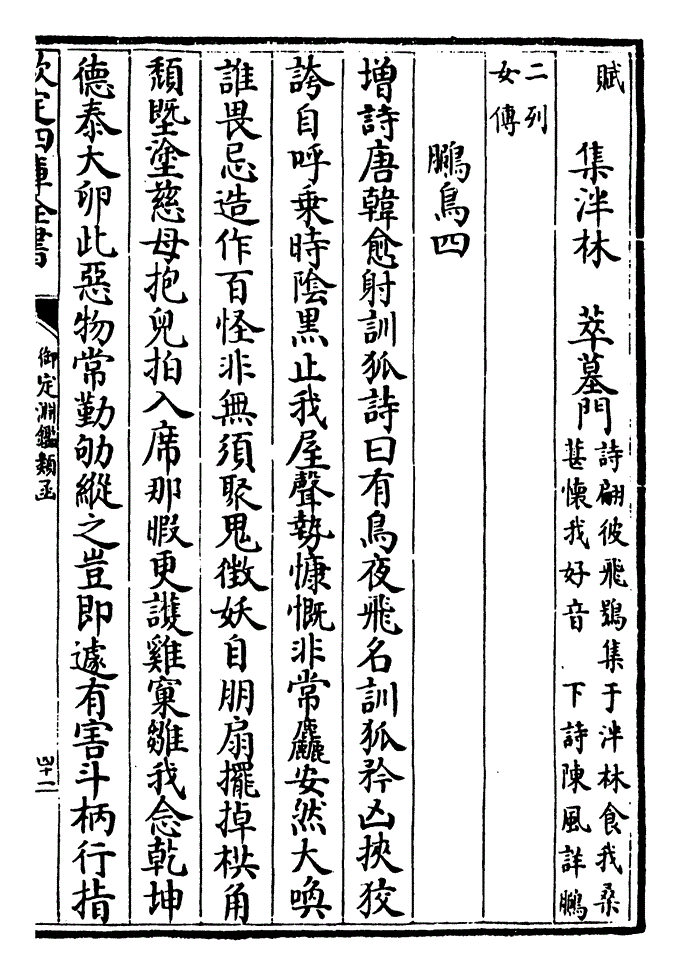 賦　集泮林　萃墓門
詩翩彼飛鴞集于泮林食我桑
葚懷我好音　下詩陳風詳鵩
二列
女傳
鵩鳥四
増詩唐韓愈射訓狐詩曰有鳥夜飛名訓狐矜凶挾狡
誇自呼乗時陰黒止我屋聲勢慷慨非常麤安然大喚
誰畏忌造作百怪非無須聚鬼徴妖自朋扇擺掉栱角
頽墍塗慈母抱兒拍入席那暇更䕶雞窠雛我念乾坤
德泰大卵此惡物常勤劬縱之豈即遽有害斗柄行指
欽定四庫全書
御定淵鑑類函